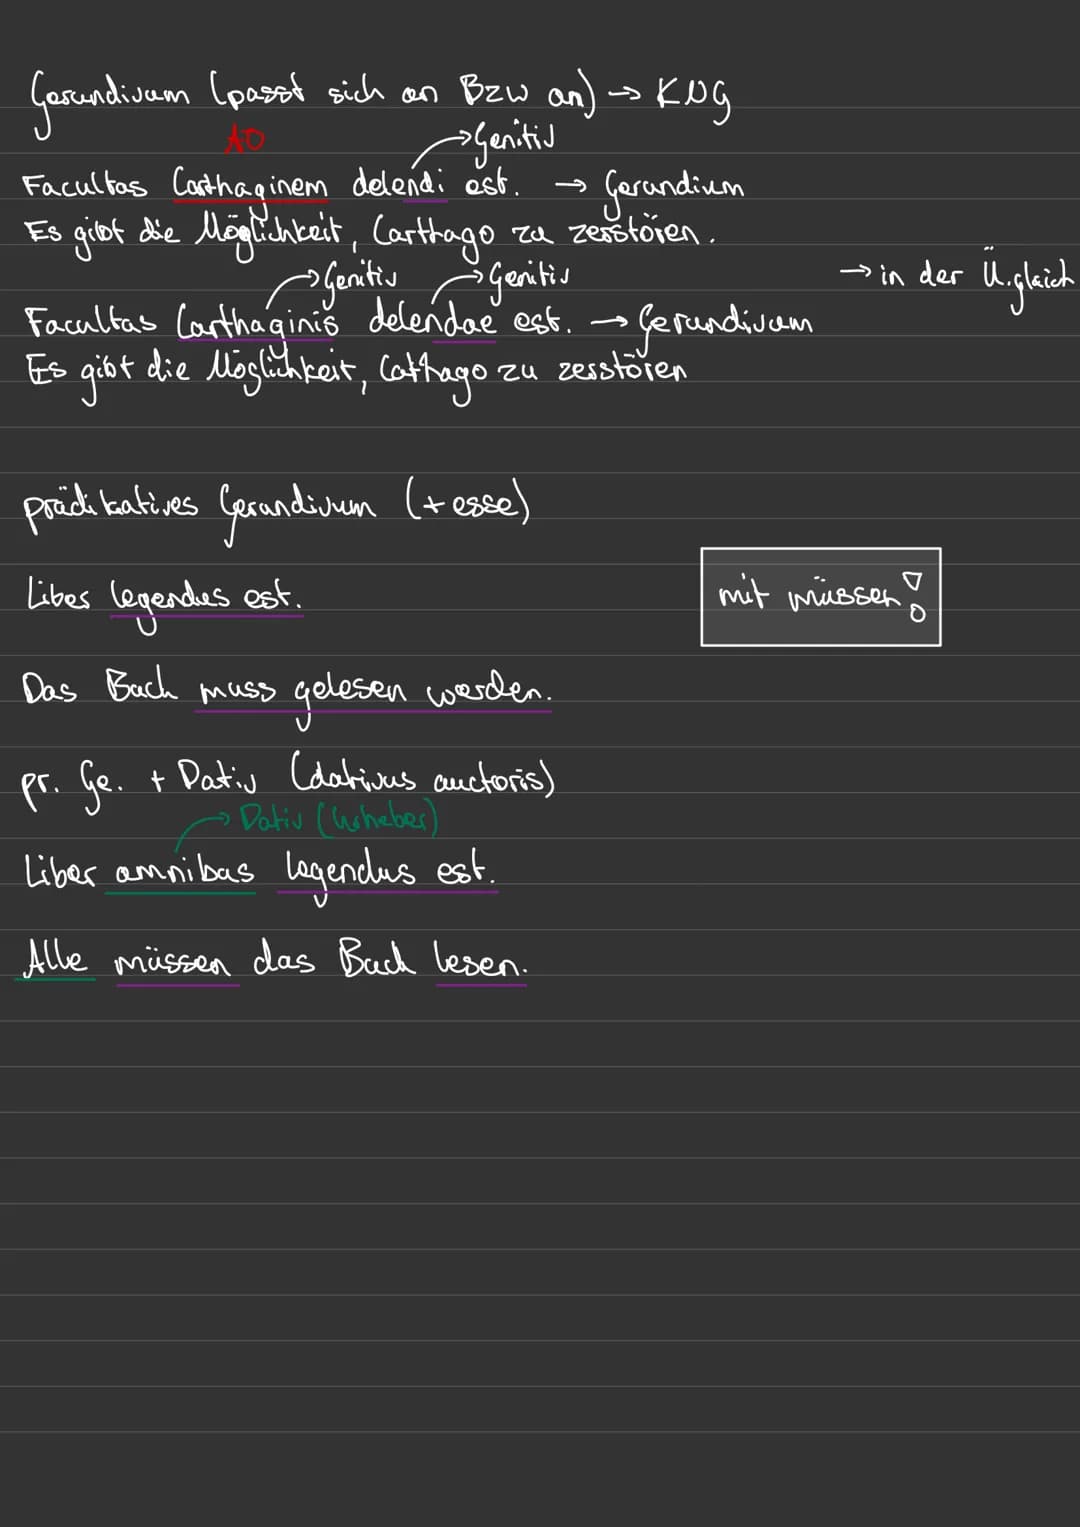 Gerundivum (passt sich an Bzw an) → KNG
AO
→ Genitiv
Facultas Carthaginem delendi est. → Gerundium
Es gibt die Möglichkeit, Carthago zu zerstören.
→ Genitiv → Genitiv
→ in der Ü. gleich
Facultas Carthaginis delendae est. → Gerundivum
Es gibt die Möglichkeit, Cathago zu zerstören
prädikatives Gerundivum (+ esse)
Liber legendus est.
mit müssen!
Das Buch muss gelesen werden.
pr. Ge. + Dativ (dativus auctoris)
→ Dativ (Urheber)
Liber omnibus legendus est.
Alle müssen das Buch lesen.